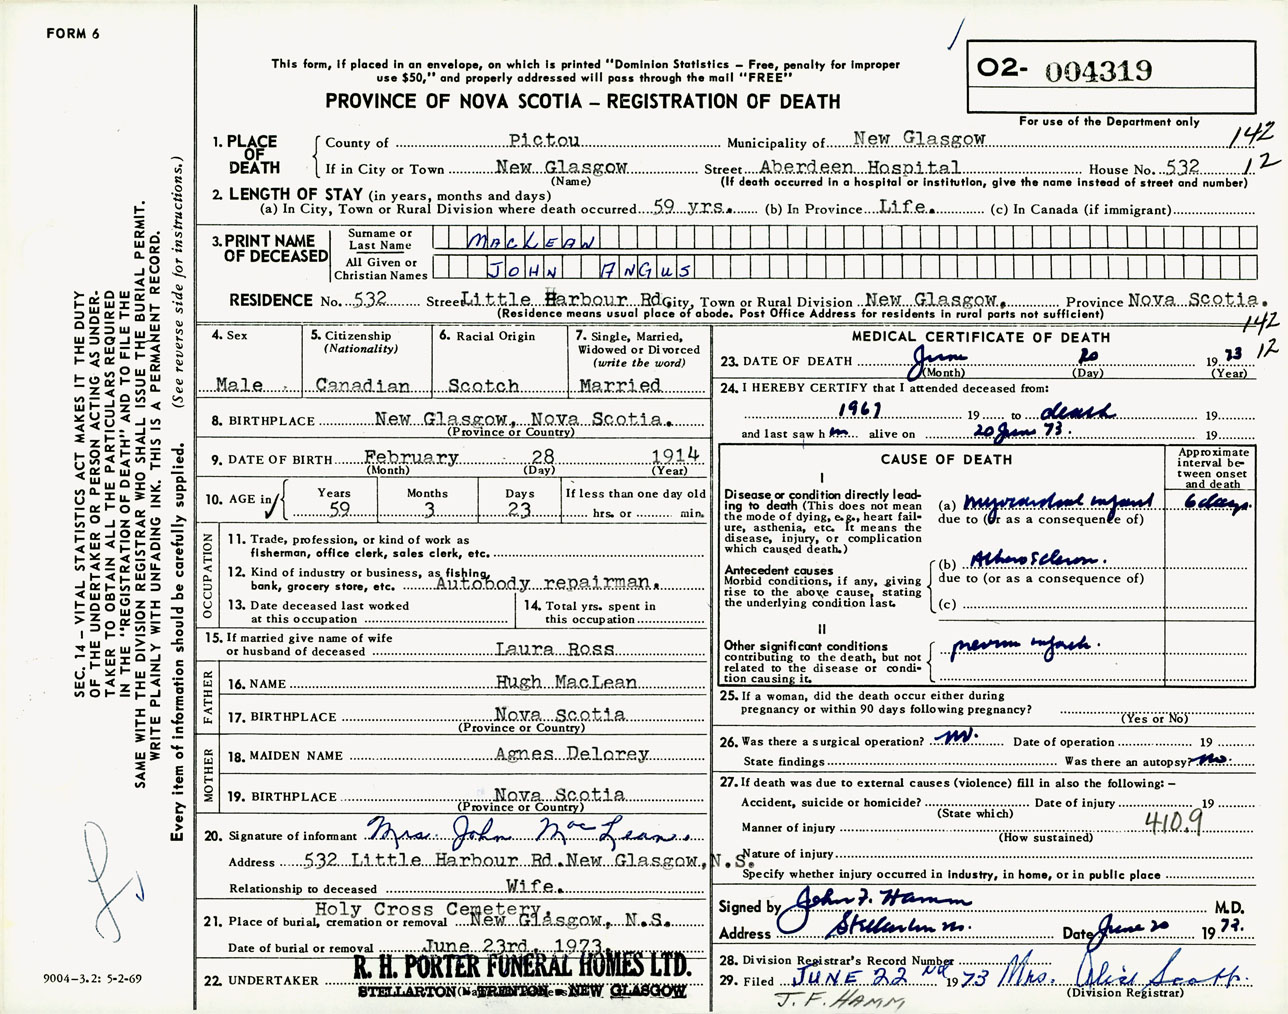 FORM 6
This form, if placed in an envelope, on which is printed "Dominion Statistics – Free, penalty for improper
use $50," and properly addressed will pass through the mail "FREE"
PROVINCE OF NOVA SCOTIA – REGISTRATION OF DEATH
O2- 004319
For use of the Department only
142
12
1. PLACE OF DEATH
County of Pictou Municipality of New Glasgow
If in City or Town New Glasgow Street Aberdeen Hospital House No. 532
(Name) (If death occurred in a hospital or institution, give the name instead of street and number)
2. LENGTH OF STAY (in years, months and days)
(a) In City, Town or Rural Division where death occurred 59 yrs. (b) In Province Life. (c) In Canada (if immigrant)
3. PRINT NAME OF DECEASED
Surname or Last Name MACLEAN
All Given or Christian Names JOHN ANGUS
RESIDENCE No. 532 Street Little Harbour Rd. City, Town or Rural Division New Glasgow. Province Nova Scotia.
(Residence means usual place of abode. Post Office Address for residents in rural parts not sufficient)
142
12
4. Sex Male
5. Citizenship (Nationality) Canadian
6. Racial Origin Scotch
7. Single, Married, Widowed or Divorced (write the word) Married
8. BIRTHPLACE New Glasgow, Nova Scotia.
(Province or Country)
9. DATE OF BIRTH February 28 1914
(Month) (Day) (Year)
10. AGE in Years 59 Months 3 Days 23 If less than one day old hrs. or min.
OCCUPATION
11. Trade, profession, or kind of work as
fisherman, office clerk, sales clerk, etc.
12. Kind of industry or business, as fishing,
bank, grocery store, etc. Autobody repairman.
13. Date deceased last worked
at this occupation
14. Total yrs. spent in
this occupation
15. If married give name of wife
or husband of deceased Laura Ross
FATHER
16. NAME Hugh MacLean
17. BIRTHPLACE Nova Scotia
(Province or Country)
MOTHER
18. MAIDEN NAME Agnes Delorey
19. BIRTHPLACE Nova Scotia
(Province or Country)
20. Signature of informant Mrs. John MacLean.
Address 532 Little Harbour Rd. New Glasgow, N.S.
Relationship to deceased Wife.
Holy Cross Cemetery,
21. Place of burial, cremation or removal New Glasgow, N.S.
Date of burial or removal June 23rd, 1973.
22. UNDERTAKER R. H. PORTER FUNERAL HOMES LTD.
STELLARTON - TRENTON - NEW GLASGOW
MEDICAL CERTIFICATE OF DEATH
23. DATE OF DEATH June 20 1973
(Month) (Day) (Year)
24. I HEREBY CERTIFY that I attended deceased from:
1967 19 to death 19
and last saw h m alive on 20 June 73. 19
CAUSE OF DEATH
Approximate interval be-tween onset and death
I
Disease or condition directly lead-
ing to death (This does not mean
the mode of dying, e.g., heart fail-
ure, asthenia, etc. It means the
disease, injury, or complication
which caused death.)
(a) myocardial infarct 6 days.
due to (or as a consequence of)
Antecedent causes
Morbid conditions, if any, giving
rise to the above cause, stating
the underlying condition last.
(b) Atheroscleros.
due to (or as a consequence of)
(c)
II
Other significant conditions
contributing to the death, but not
related to the disease or condi-
tion causing it.
previous infarct.
25. If a woman, did the death occur either during
pregnancy or within 90 days following pregnancy?
(Yes or No)
26. Was there a surgical operation? no. Date of operation 19
State findings Was there an autopsy? no.
27. If death was due to external causes (violence) fill in also the following: –
Accident, suicide or homicide? Date of injury 19
(State which)
Manner of injury 410.9
(How sustained)
Nature of injury
Specify whether injury occurred in industry, in home, or in public place
Signed by John F. Hamm M.D.
Address Stellarton Date June 20 1973.
28. Division Registrar's Record Number
29. Filed JUNE 22ND 1973 Mrs. Alice Scott.
(Division Registrar)
J. F. HAMM
SEC. 14 – VITAL STATISTICS ACT MAKES IT THE DUTY
OF THE UNDERTAKER OR PERSON ACTING AS UNDER-
TAKER TO OBTAIN ALL THE PARTICULARS REQUIRED
IN THE "REGISTRATION OF DEATH" AND TO FILE THE
SAME WITH THE DIVISION REGISTRAR WHO SHALL ISSUE THE BURIAL PERMIT.
WRITE PLAINLY WITH UNFADING INK. THIS IS A PERMANENT RECORD.
Every item of information should be carefully supplied. (See reverse side for instructions.)
9004–3.2: 5-2-69